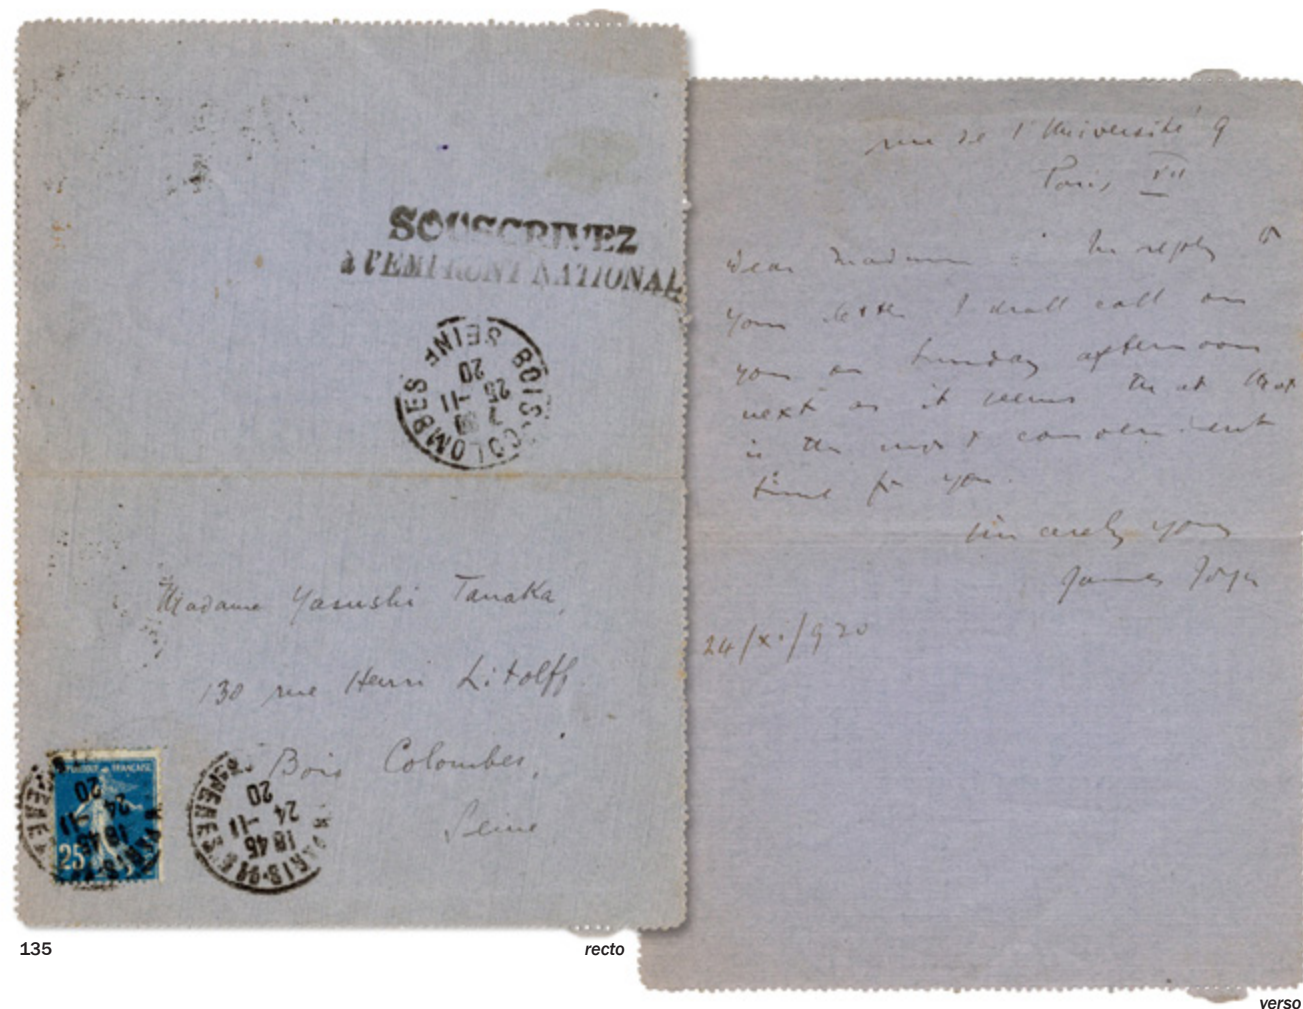 SOUSCRIVEZ
à l'EMPRUNT NATIONAL
BOIS-COLOMBES SEINE
7 30
25 -11
20
Madame Yasushi Tanaka,
130 rue Henri Litolff
Bois Colombes,
Seine
REPUBLIQUE FRANÇAISE
25
18 45
24 -11
20
PARIS
18 45
24 -11
20
135
recto
rue de l'Université 9
Paris VII
Dear Madam: In reply to
your letter I shall call on
you on Sunday afternoon
next as it seems that that
is the most convenient
time for you.
Sincerely yours
James Joyce
24/xi/920
verso